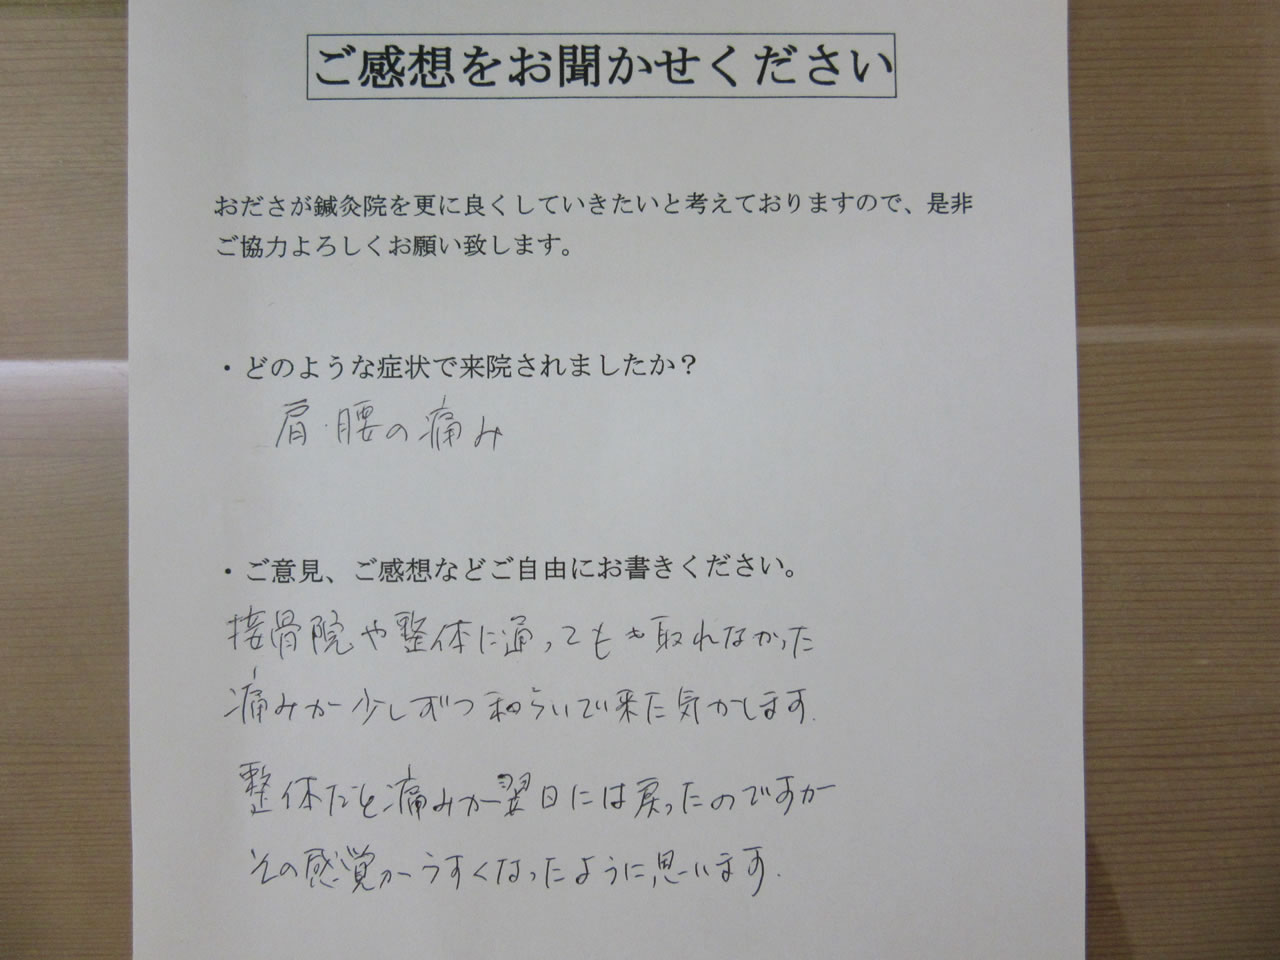 ご感想をお聞かせください
おださが鍼灸院を更に良くしていきたいと考えておりますので、是非
ご協力よろしくお願い致します。
・どのような症状で来院されましたか？
肩・腰の痛み
・ご意見、ご感想などご自由にお書きください。
接骨院や整体に通っても取れなかった
痛みが少しずつ和らいで来た気がします.
整体だと痛みが翌日には戻ったのですが
その感覚がうすくなったように思います.